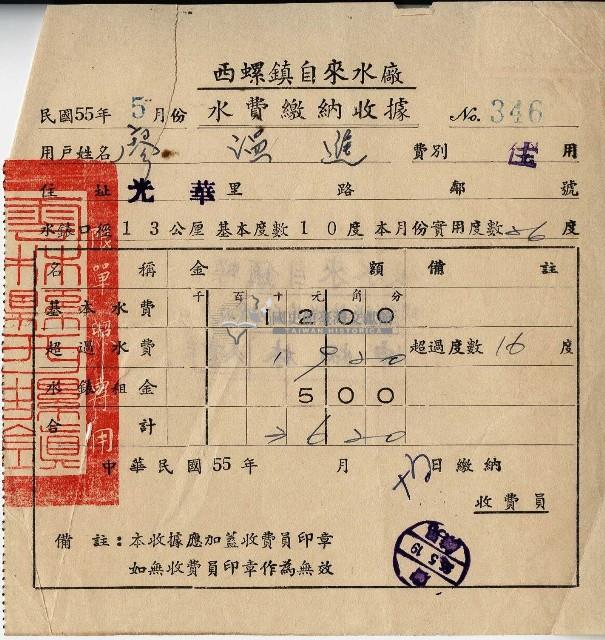 西螺鎮自來水廠
民國55年 5月份 水費繳納收據 No. 346
用戶姓名 廖 進 費別 住 用
住址 光華里 路 鄰 號
水錶口徑 13公厘 基本度數10度 本月份實用度數26度
名稱 金額 備註
千 百 十 元 角 分
基本水費 1 2 0 0
超過水費 1 9 2 0 超過度數 16 度
水錶租金 5 0 0
合計 3 6 2 0
中華民國55年 月 日繳納
收費員
備註：本收據應加蓋收費員印章
如無收費員印章作為無效
單聯專用
55.5.19
國史館臺灣文獻館
TAIWAN HISTORICA